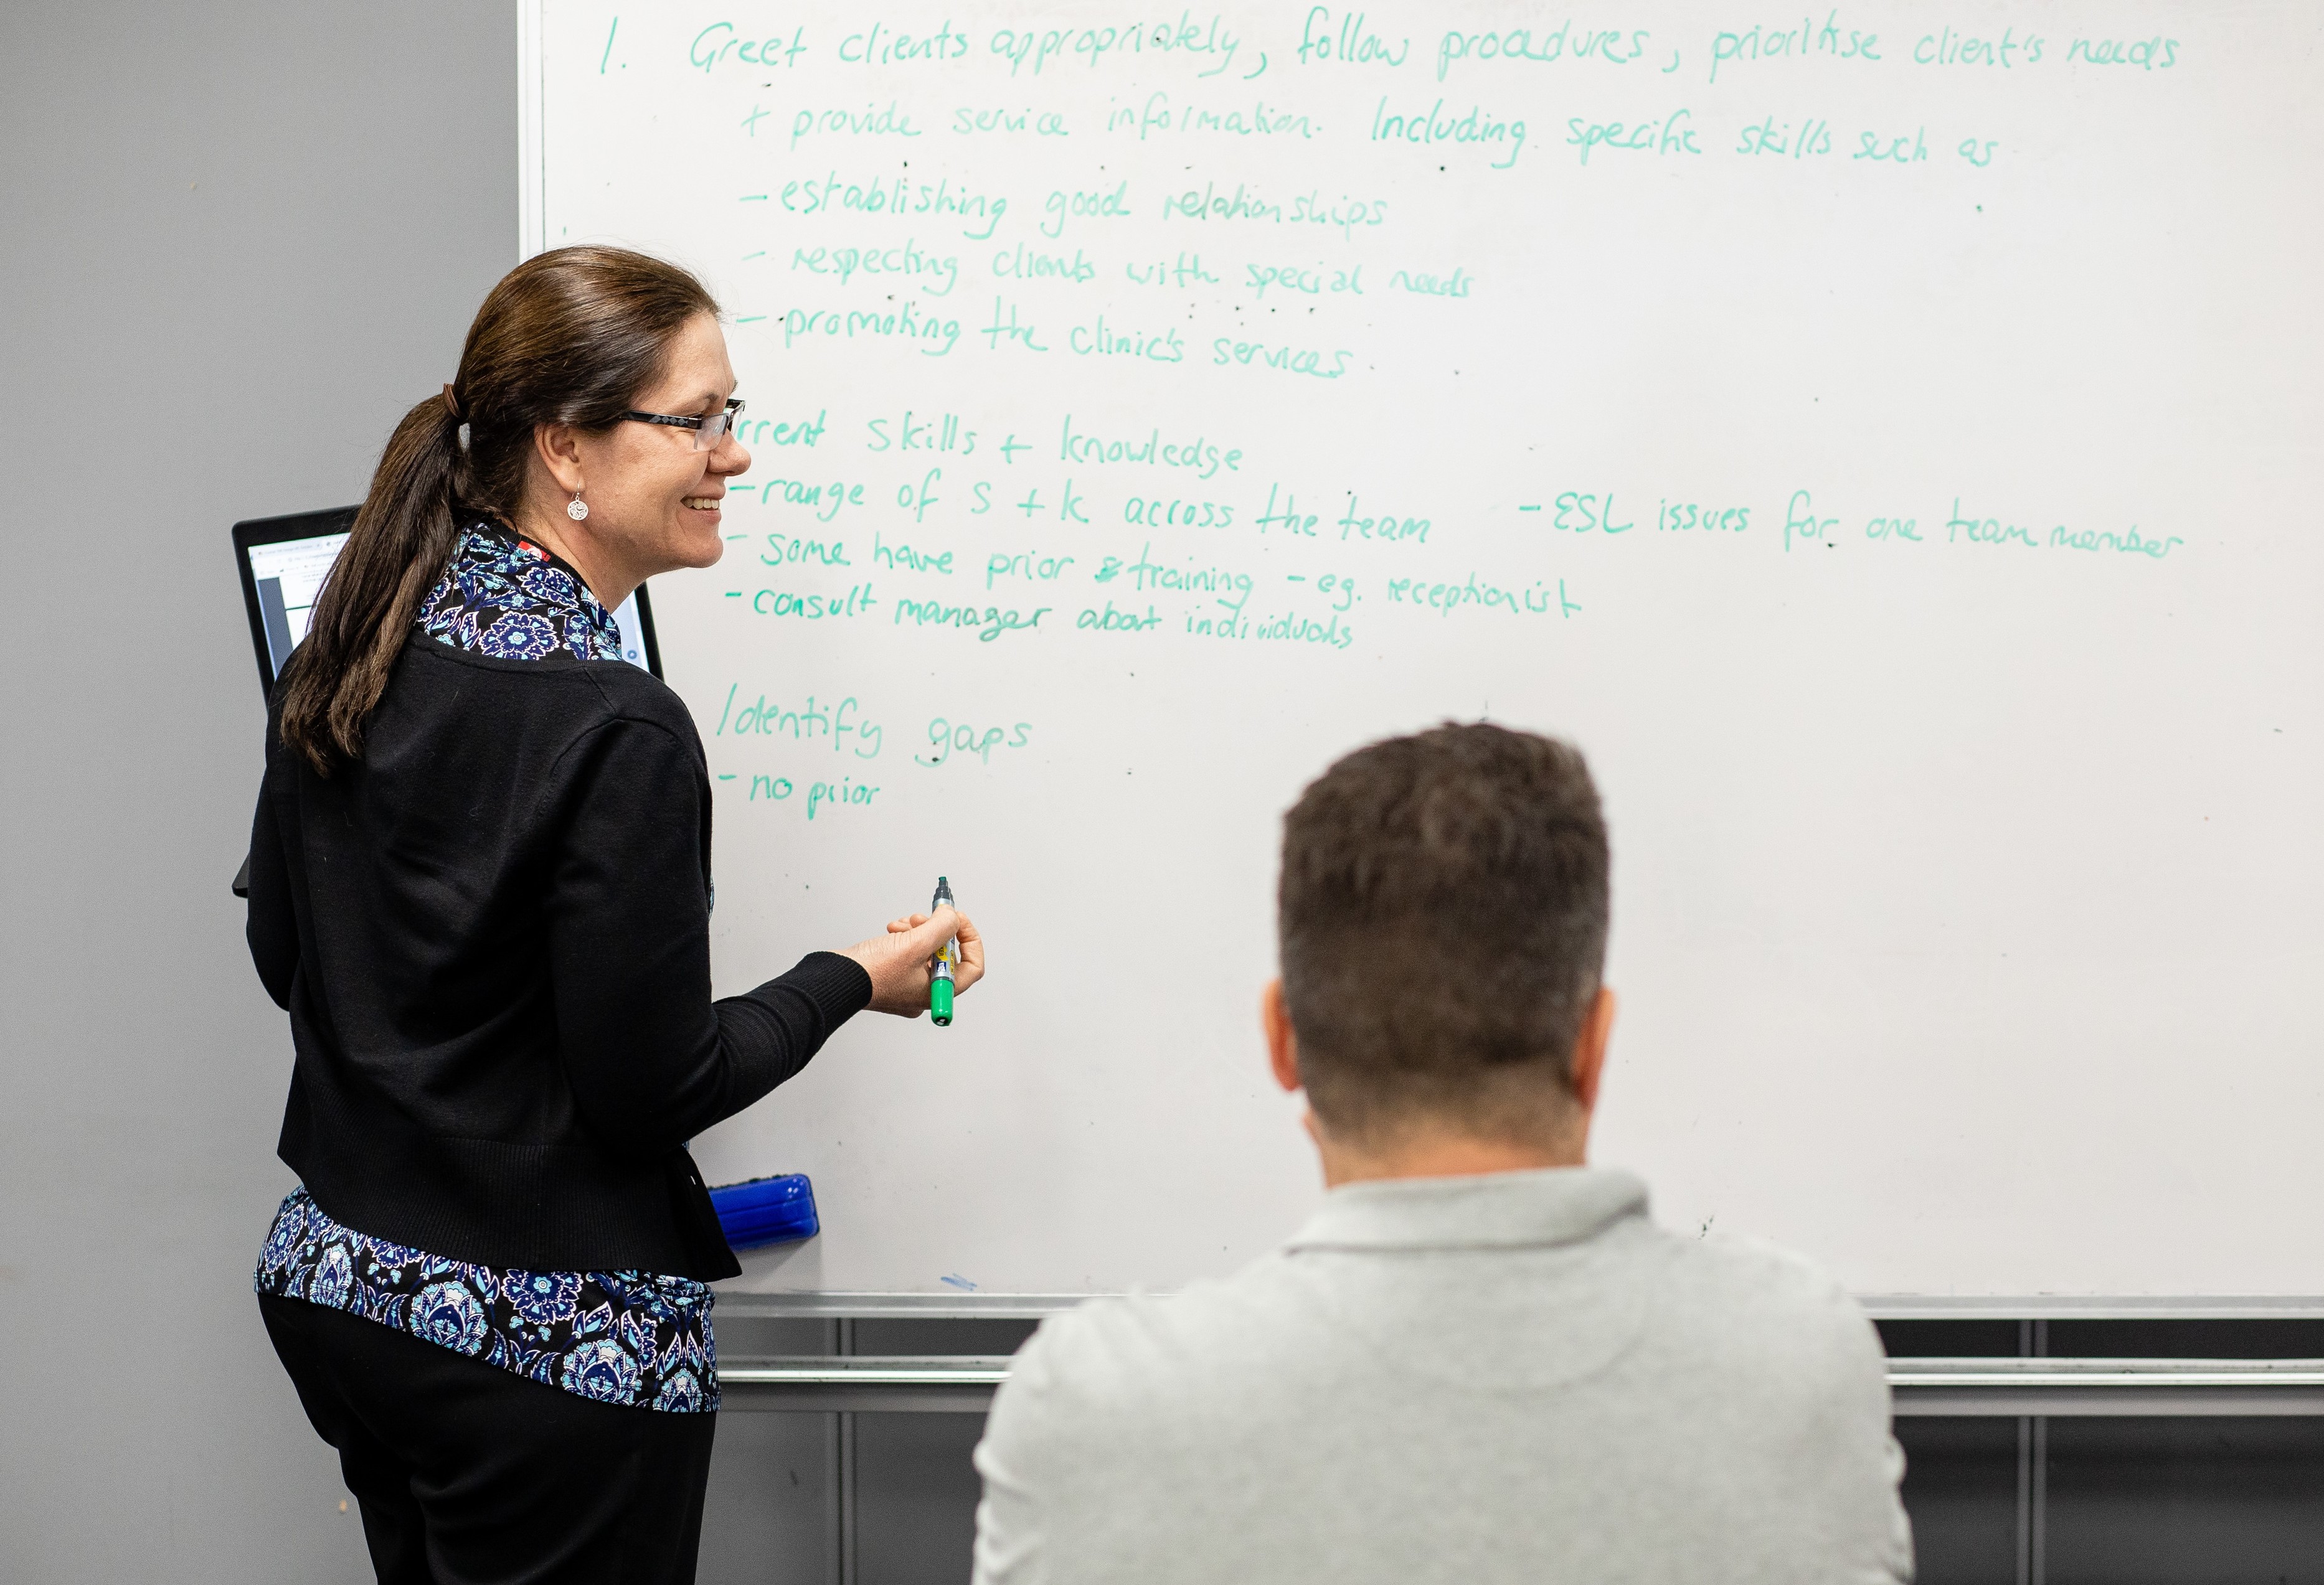 1. Greet clients appropriately, follow procedures, prioritise client's needs
+ provide service information. Including specific skills such as
- establishing good relationships
- respecting clients with special needs
- promoting the clinic's services.
rrent skills + knowledge
- range of S + K across the team - ESL issues for one team member
- some have prior training - eg. receptionist
- consult manager about individuals
Identify gaps
- no prior